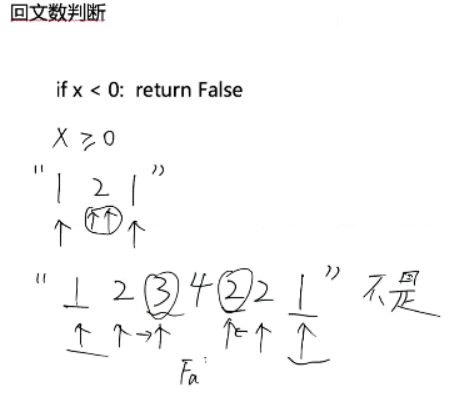 回文数判断
if x < 0: return False
X ≥ 0
"1 2 1"
"1 2 3 4 2 2 1" 不是
Fa